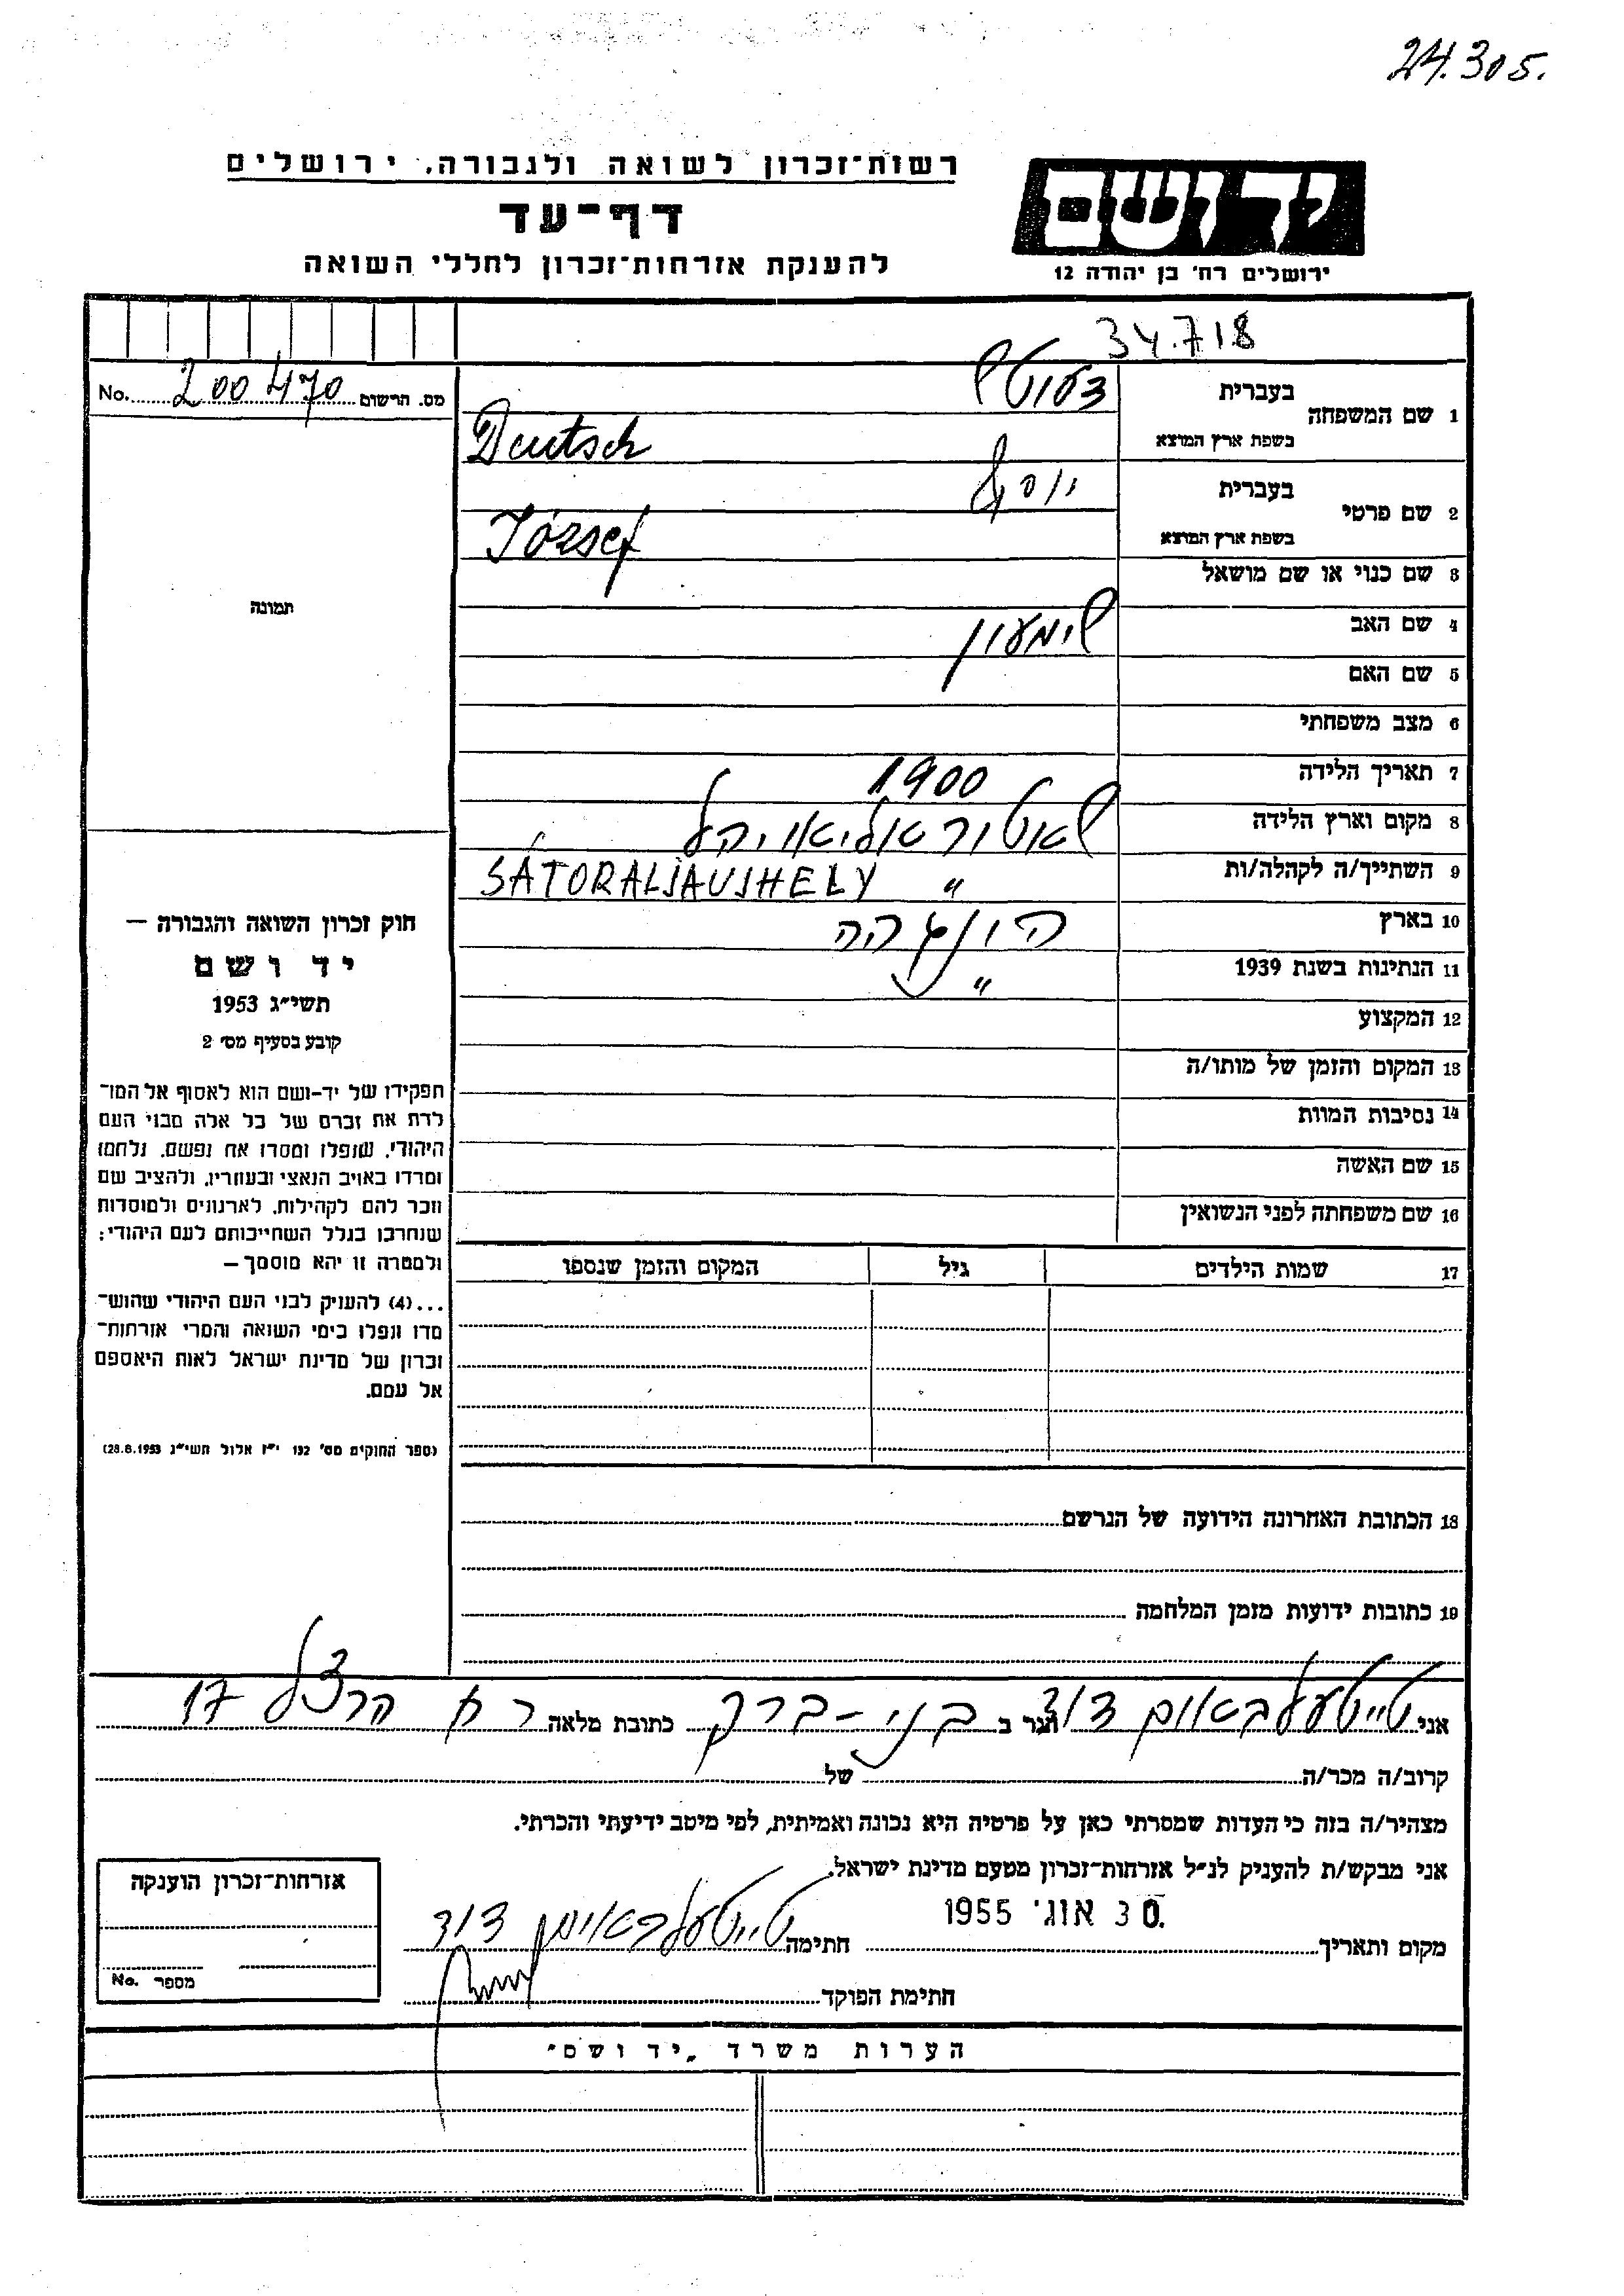 24.305.
רשות־זכרון לשואה ולגבורה, ירושלים
דף־עד
להענקת אזרחות־זכרון לחללי השואה
יד ושם
ירושלים רח׳ בן יהודה 12
34.718
מס. הרשום 200470 No.
1 שם המשפחה בעברית דעוטש
בשפת ארץ המוצא Deutsch
2 שם פרטי בעברית יוסף
בשפת ארץ המוצא József
3 שם כנוי או שם מושאל
4 שם האב שימעון
5 שם האם
6 מצב משפחתי
7 תאריך הלידה 1900
8 מקום וארץ הלידה
9 השתייך/ה לקהלה/ות " SÁTORALJAUJHELY
10 בארץ
11 הנתינות בשנת 1939 "
12 המקצוע
13 המקום והזמן של מותו/ה
14 נסיבות המוות
15 שם האשה
16 שם משפחתה לפני הנשואין
17 שמות הילדים גיל המקום והזמן שנספו
18 הכתובת האחרונה הידועה של הנרשם
19 כתובות ידועות מזמן המלחמה
תמונה
חוק זכרון השואה והגבורה —
יד ושם
תשי״ג 1953
קובע בסעיף מס׳ 2
תפקידו של יד-ושם הוא לאסוף אל המו־
לדת את זכרם של כל אלה מבני העם
היהודי, שנפלו ומסרו את נפשם, נלחמו
ומרדו באויב הנאצי ובעוזריו, ולהציב שם
וזכר להם לקהילות, לארגונים ולמוסדות
שנחרבו בגלל השתייכותם לעם היהודי;
ולמטרה זו יהא מוסמך —
...(4) להעניק לבני העם היהודי שהוש־
מדו ונפלו בימי השואה והמרי אזרחות־
זכרון של מדינת ישראל לאות היאספם
אל עמם.
(ספר החוקים מס׳ 132 י״ז אלול תשי״ג 28.8.1953)
אני טייטעלבאום דוד הגר ב בני-ברק כתובת מלאה רח הרצל 17
קרוב/ה מכר/ה של
מצהיר/ה בזה כי העדות שמסרתי כאן על פרטיה היא נכונה ואמיתית, לפי מיטב ידיעתי והכרתי.
אני מבקש/ת להעניק לנ״ל אזרחות־זכרון מטעם מדינת ישראל.
30 אוג׳ 1955
מקום ותאריך חתימה טייטעלבאום דוד
חתימת הפוקד
אזרחות־זכרון הוענקה
מספר No.
הערות משרד „יד ושם״